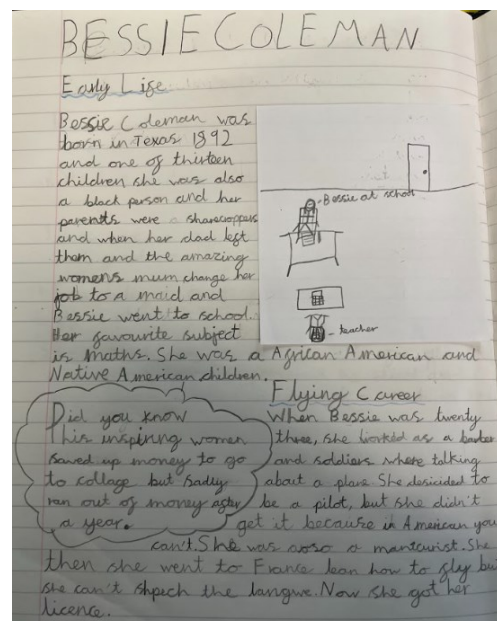 BESSIE COLEMAN
Early Life
Bessie Coleman was
born in Texas 1892
and one of thirteen
children she was also
a black person and her
parents were a sharecroppers
and when her dad left
them and the amazing
womens mum change her
job to a maid and
Bessie went to school.
Her favourite subject
is maths. She was a African American and
Native American children.
Bessie at school
teacher
Did you know
This inspiring women
saved up money to go
to collage but sadly
ran out of money after
a year.
Flying Career
When Bessie was twenty
three, she worked as a barber
and soldiers where talking
about a plane She desicided to
be a pilot, but she didn't
get it because in American you
can't. She was aoso a manicurist. She
then she went to France lean how to fly but
she can't shpech the langwe. Now she got her
licence.